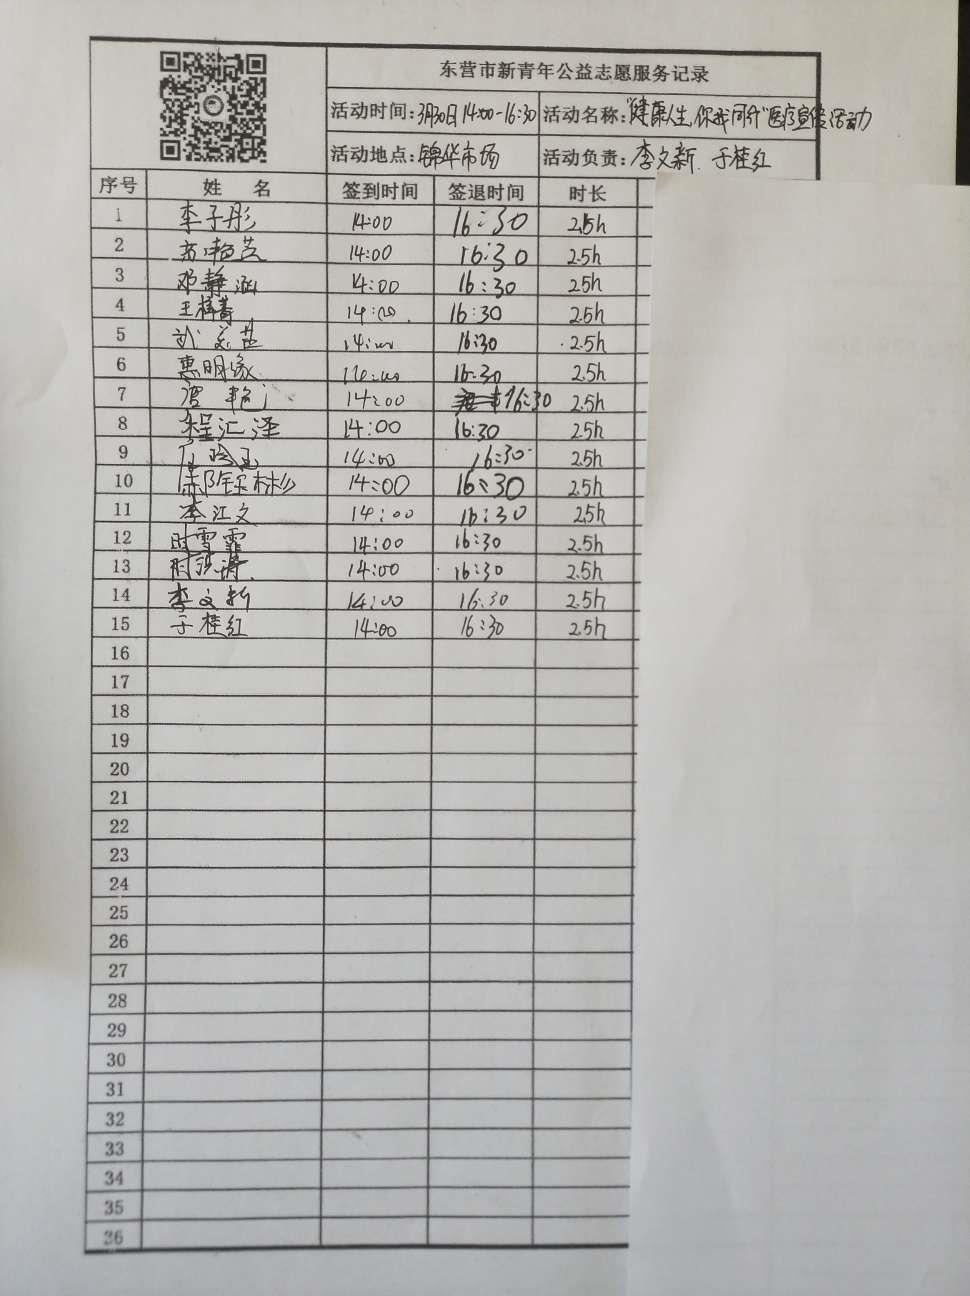 东营市新青年公益志愿服务记录
活动时间:3月30日14:00-16:30 活动名称:"健康人生,你我同行"医疗宣传活动
活动地点:锦华市场 活动负责:李文新、于桂红
序号 姓 名 签到时间 签退时间 时长
1 李子彤 14:00 16:30 2.5h
2 14:00 16:30 2.5h
3 邓静涵 14:00 16:30 2.5h
4 王梓菁 14:00 16:30 2.5h
5 14:00 16:30 2.5h
6 惠明缘 14:00 16:30 2.5h
7 唐艳 14:00 16:30 2.5h
8 程汇泽 14:00 16:30 2.5h
9 14:00 16:30 2.5h
10 14:00 16:30 2.5h
11 李江文 14:00 16:30 2.5h
12 时雪霏 14:00 16:30 2.5h
13 14:00 16:30 2.5h
14 李文新 14:00 16:30 2.5h
15 于桂红 14:00 16:30 2.5h
16
17
18
19
20
21
22
23
24
25
26
27
28
29
30
31
32
33
34
35
36